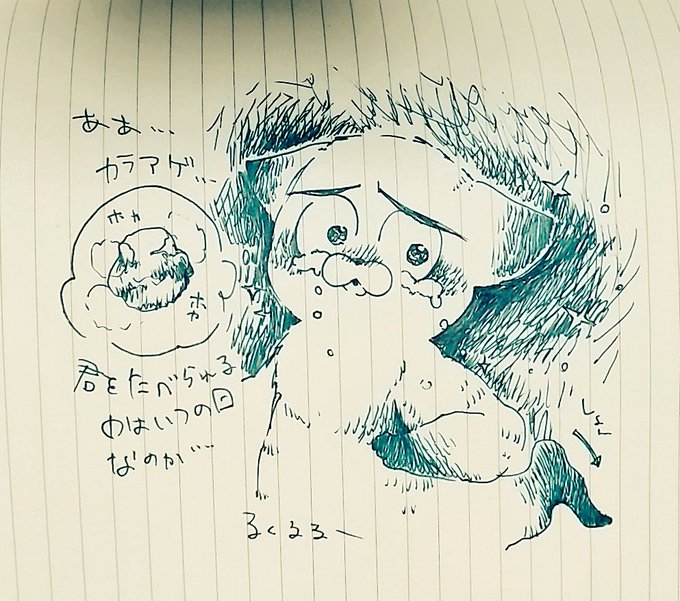 ああ…
カラアゲ…
ホカ
ホカ
君をたべられる
のはいつの日
なのか…
るくるるー
しょん